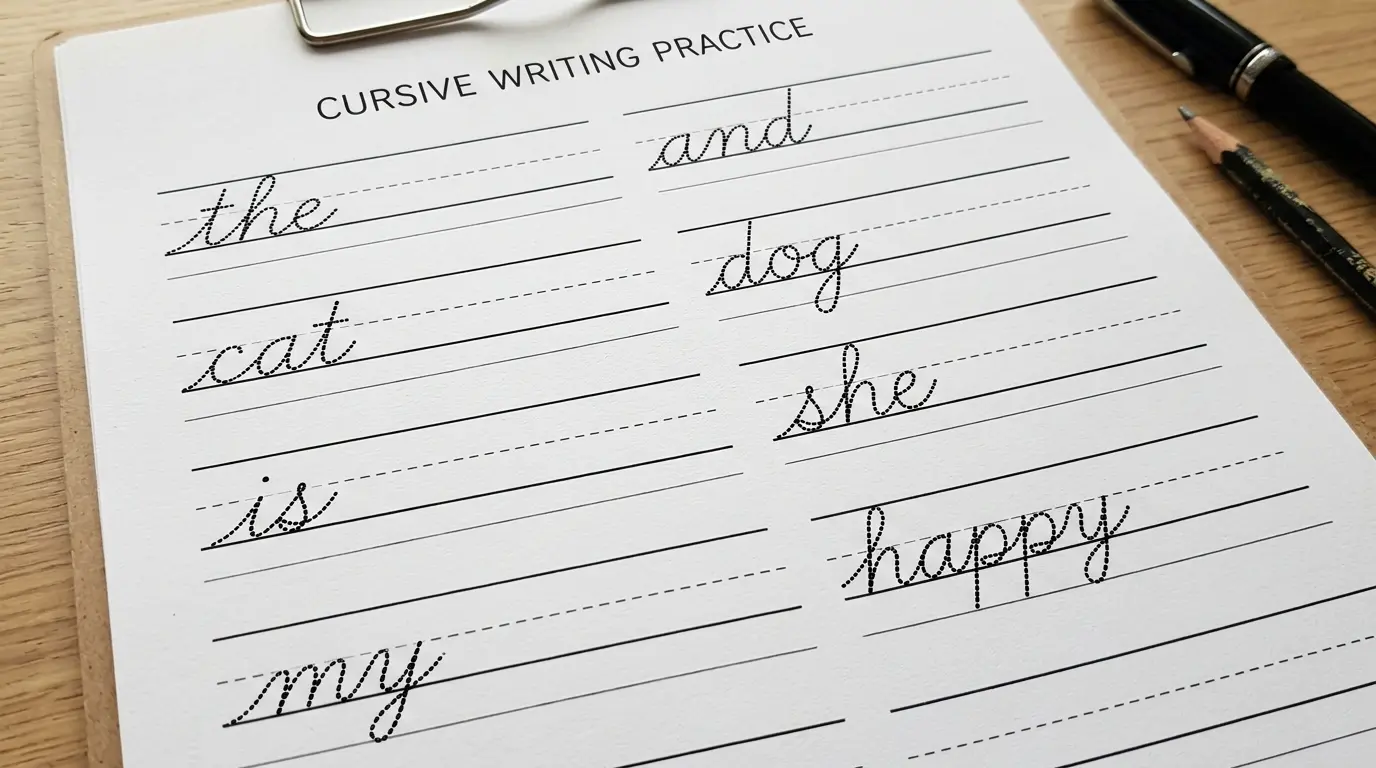 CURSIVE WRITING PRACTICE
the
and
cat
dog
is
she
my
happy